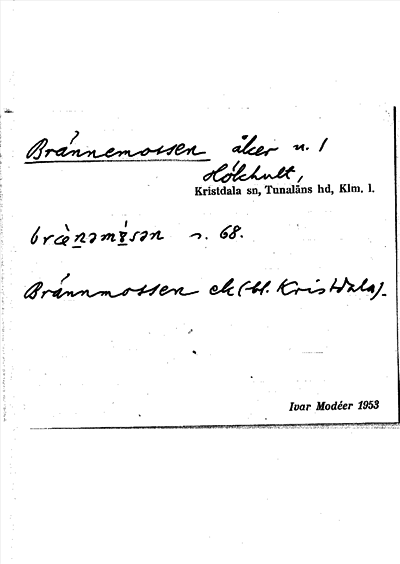 Brännemossen åker n. 1
Hökhult,
Kristdala sn, Tunaläns hd, Klm. l.
s. 68.
Brännmossen ek (bl. Kristdala).
Ivar Modéer 1953